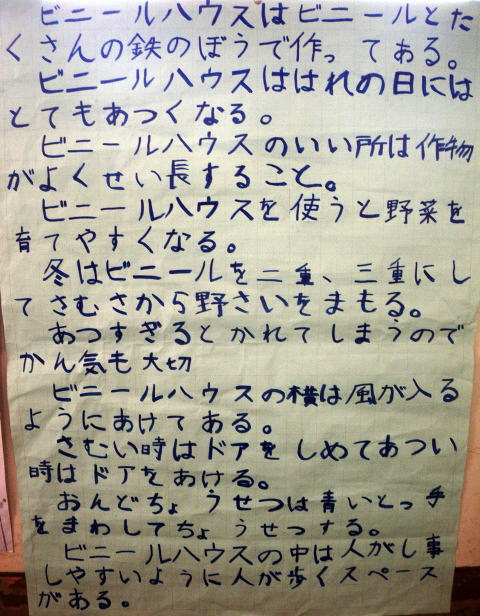 ビニールハウスはビニールとた
くさんの鉄のぼうで作ってある。
ビニールハウスははれの日には
とてもあつくなる。
ビニールハウスのいい所は作物
がよくせい長すること。
ビニールハウスを使うと野菜を
育てやすくなる。
冬はビニールを二重、三重にし
てさむさから野さいをまもる。
あつすぎるとかれてしまうので
かん気も大切
ビニールハウスの横は風が入る
ようにあけてある。
さむい時はドアをしめてあつい
時はドアをあける。
おんどちょうせつは青いとっ手
をまわしてちょうせつする。
ビニールハウスの中は人がし事
しやすいように人が歩くスペース
がある。